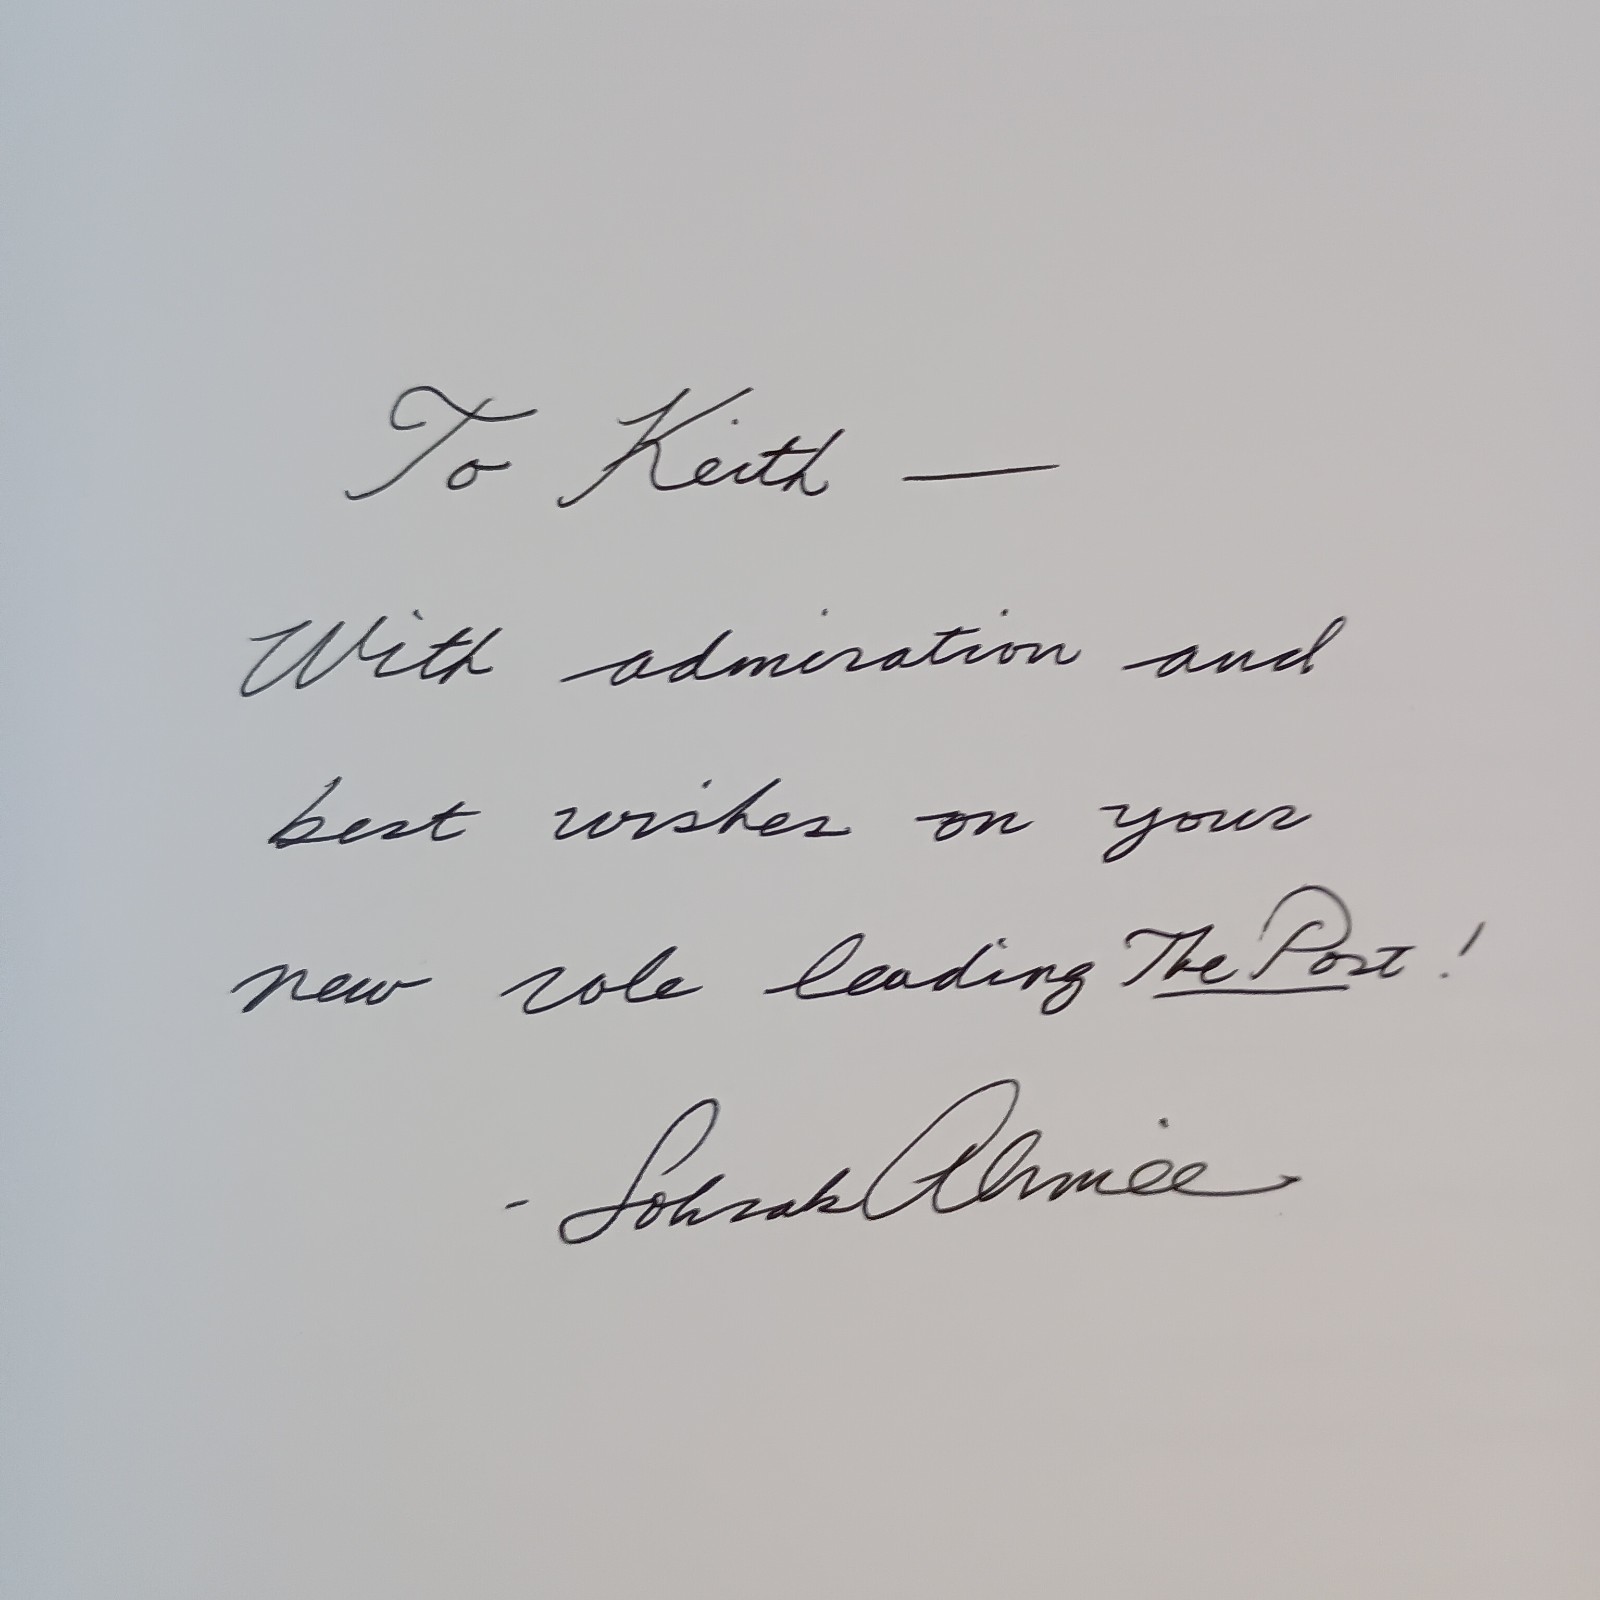 To Keith —
With admiration and
best wishes on your
new role leading The Post!
- Sohrab Ahmari